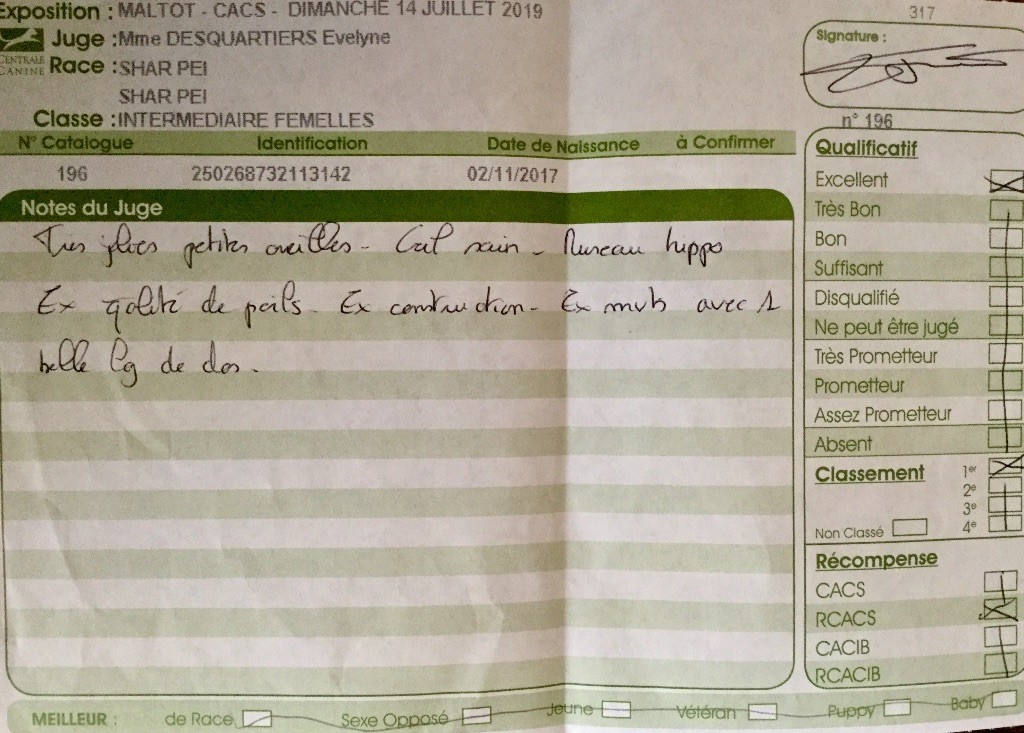 Exposition : MALTOT - CACS - DIMANCHE 14 JUILLET 2019
317
CENTRALE CANINE
Juge : Mme DESQUARTIERS Evelyne
Signature :
Race : SHAR PEI
SHAR PEI
Classe : INTERMEDIAIRE FEMELLES
n° 196
N° Catalogue Identification Date de Naissance à Confirmer
196 250268732113142 02/11/2017
Notes du Juge
Très jolies petites oreilles - Oeil sain - Museau hippo
Ex qolité de poils - Ex construction - Ex mvts avec 1
belle lg de dos.
Qualificatif
Excellent
Très Bon
Bon
Suffisant
Disqualifié
Ne peut être jugé
Très Prometteur
Prometteur
Assez Prometteur
Absent
Classement 1er
2e
3e
Non Classé 4e
Récompense
CACS
RCACS
CACIB
RCACIB
MEILLEUR : de Race Sexe Opposé Jeune Vétéran Puppy Baby